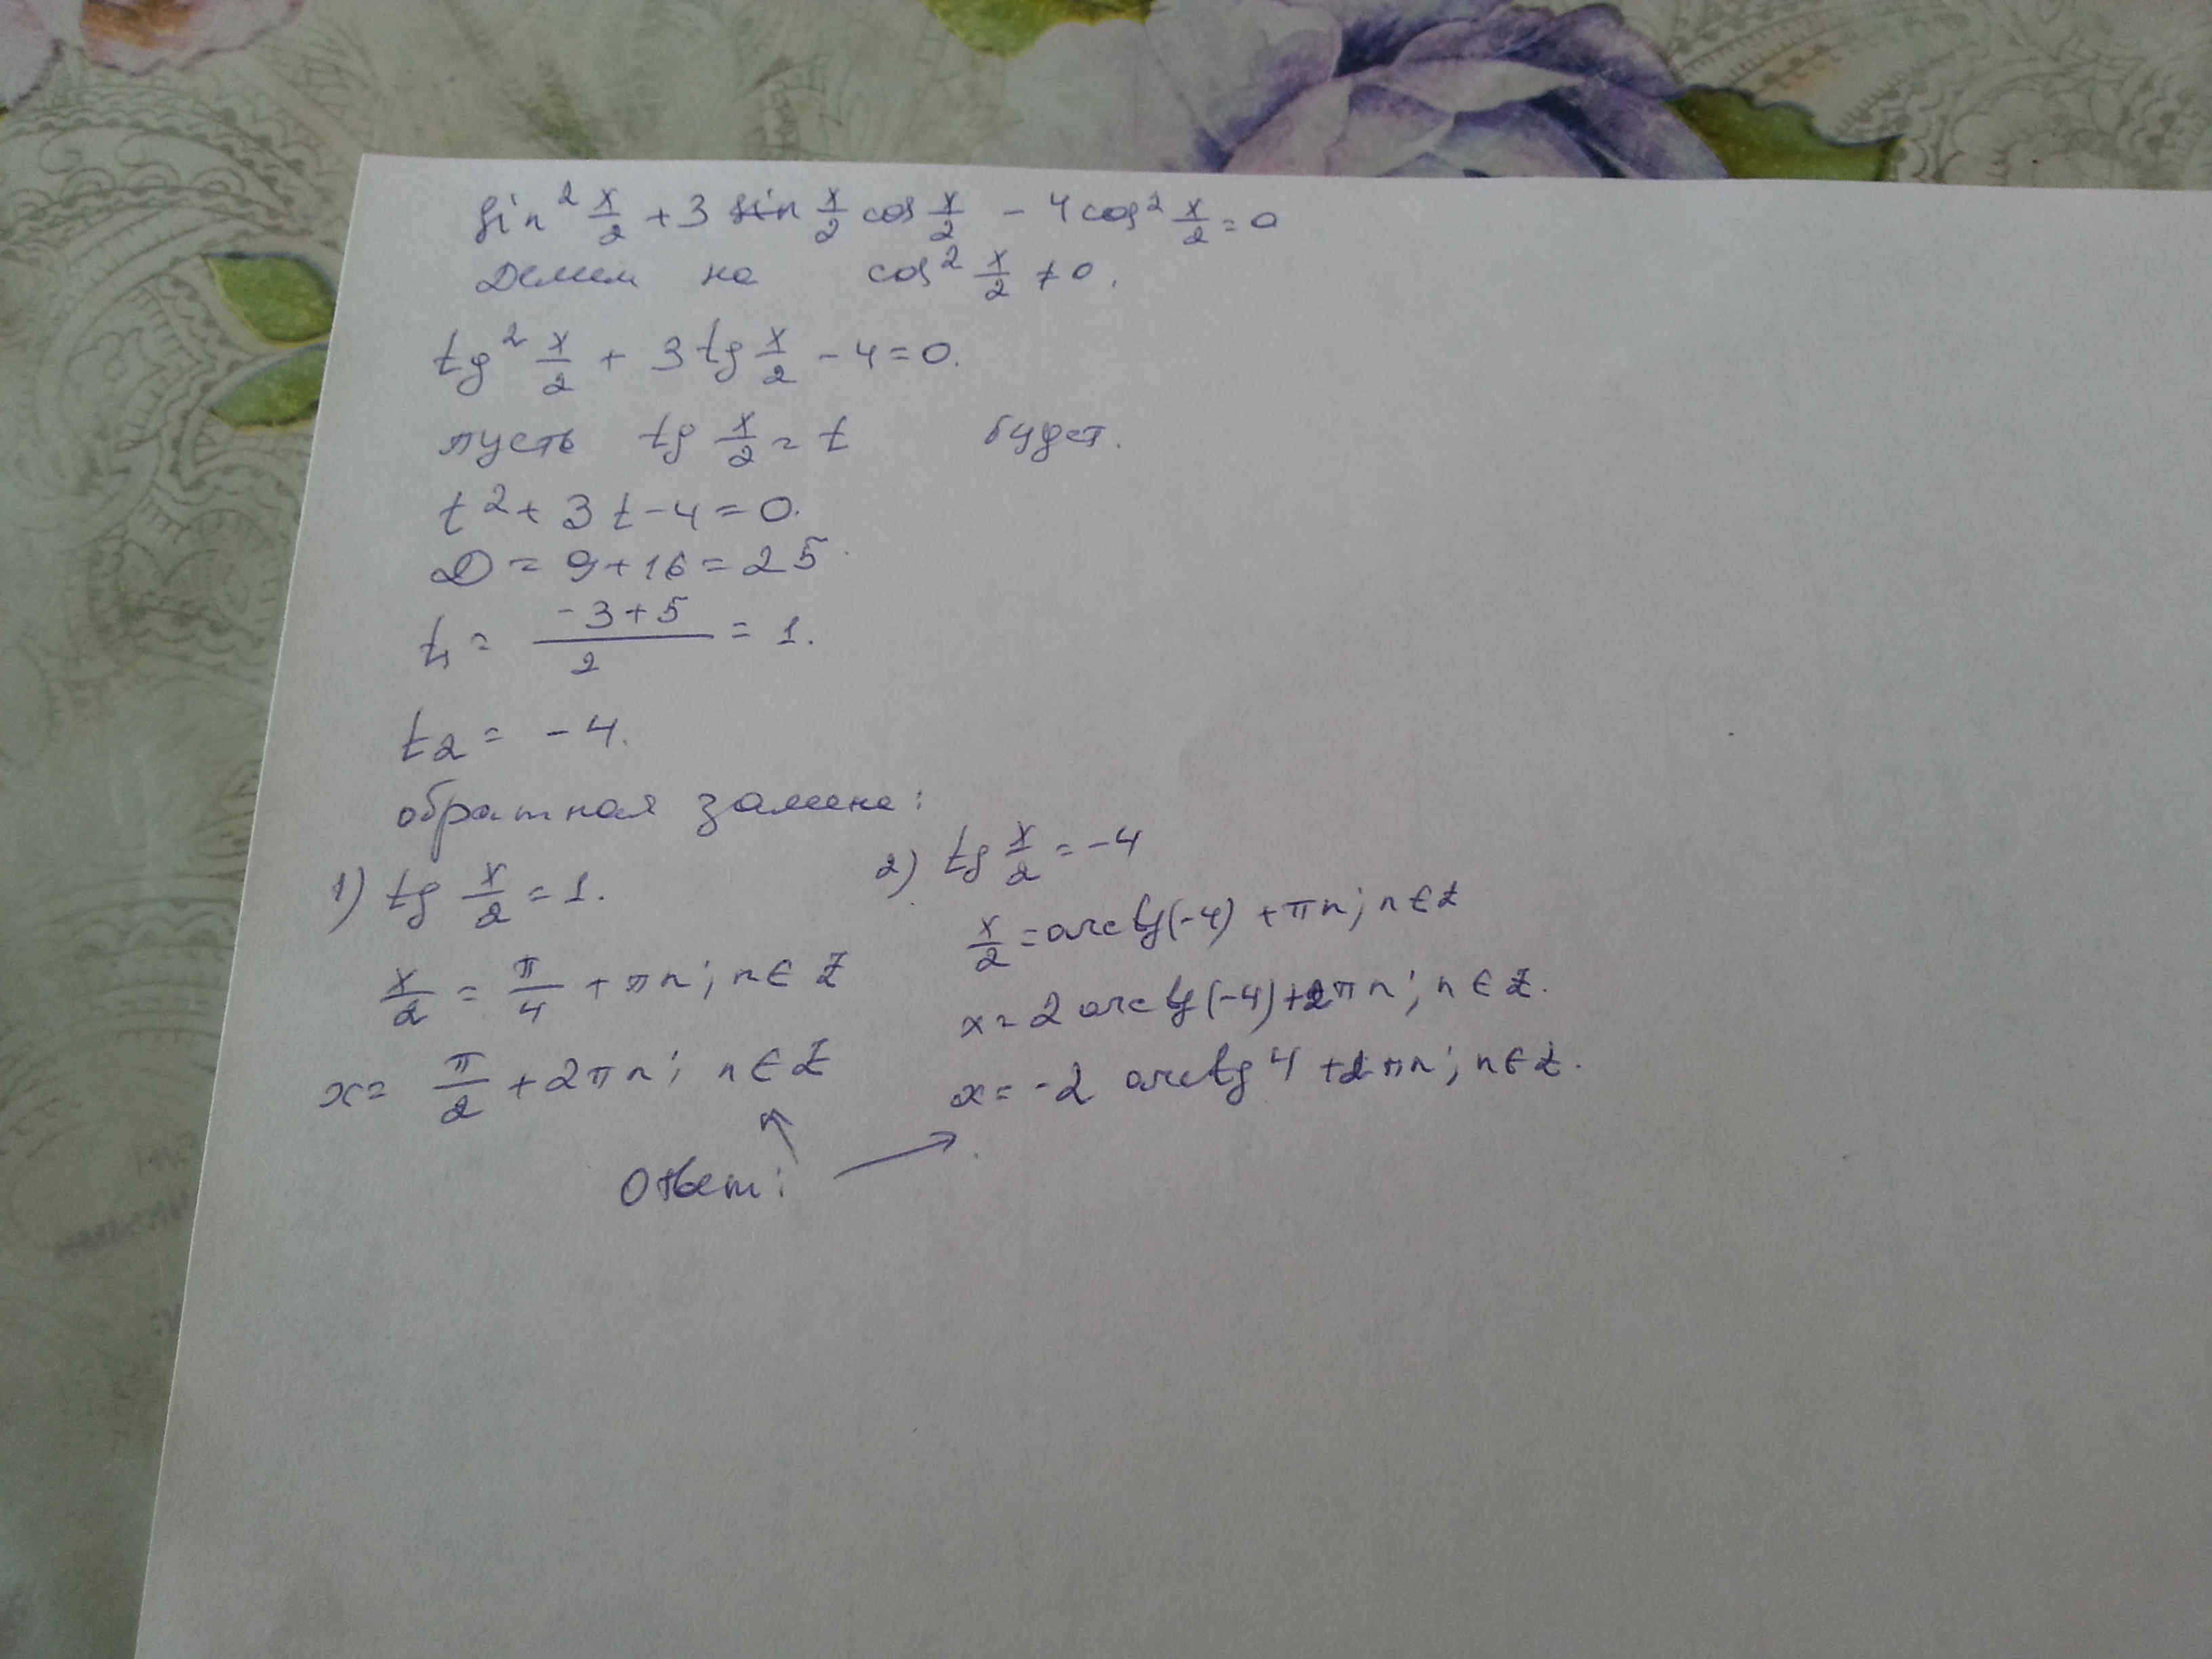 sin² x/2 + 3 sin x/2 cos x/2 - 4 cos² x/2 = 0
Делим на cos² x/2 ≠ 0.
tg² x/2 + 3 tg x/2 - 4 = 0.
пусть tg x/2 = t будет.
t² + 3t - 4 = 0.
D = 9 + 16 = 25
t₁ = (-3 + 5)/2 = 1.
t₂ = -4.
обратная замена:
1) tg x/2 = 1.
x/2 = π/4 + πn; n ∈ Z
x = π/2 + 2πn; n ∈ Z
2) tg x/2 = -4
x/2 = arctg(-4) + πn; n ∈ Z
x = 2 arctg(-4) + 2πn; n ∈ Z.
x = -2 arctg 4 + 2πn; n ∈ Z.
Ответ: